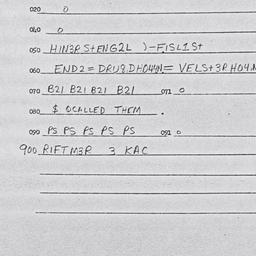 020 0
040 0
050 HIN3R STENG2L )-FISLISt
060 END2= DRU9.DHO44N= VELSt3R HO4.N
070 B21 B21 B21 B21 071 0
080 $ OCALLED THEM .
090 PS PS PS PS PS 091 0
900 RIFTM3R 3 KAC